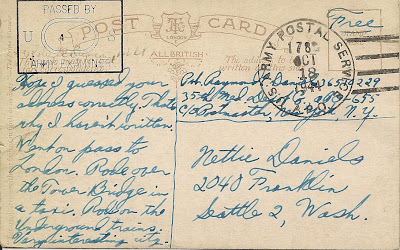 PASSED BY
U S
ARMY EXAMINER
POST CARD
ALL BRITISH
Free
ARMY POSTAL SERVICE
178
OCT
18
1944
A.P.O.
Pvt. Raymond
APO 655
C/O Postmaster, New York, N.Y.
Hope I guessed your
address correctly. That's
why I haven't written.
Went on pass to
London. Rode over
the Tower Bridge in
a taxi. Rode on the
Underground trains.
Very interesting city.
Nettie Daniels
2040 Franklin
Seattle 2, Wash.